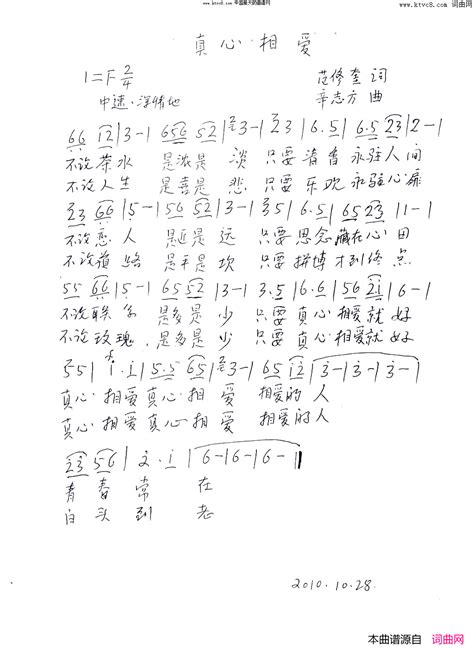 www.ktvc8.com 中国最大的曲谱网
www.ktvc8.com 词曲网
真心相爱
1=F 2/4
范修奎 词
中速·深情地
辛志方 曲
66 12|3-1 656 52|3-1 23|6.5|6.5 23|2-1
不说茶水 是浓是 淡 只要清香永驻人间
不说人生 是喜是 悲 只要 乐欢永驻心扉
23 66|5-1 56 52|3-1 35|6.5|65 23|1-1
不说恋人 是近是远 只要思念藏在心田
不说道路 是平是坎 只要拼博才到终点
55 66|5-1 65 52|3-1 3.5|6.6|56 21|6-1
不说联系 是多是少 只要真心相爱就好
不说玫瑰,是多是少 只要真心相爱就好
55|1.1|5.5|65 52|3-1 65 12|3-|3-|3-|
真心相爱真心相爱 相爱的人
真心相爱真心相爱 相爱的人
23 56|2.1|6-|6-|6-||
青春常在
白头到老
2010.10.28.
本曲谱源自 词曲网